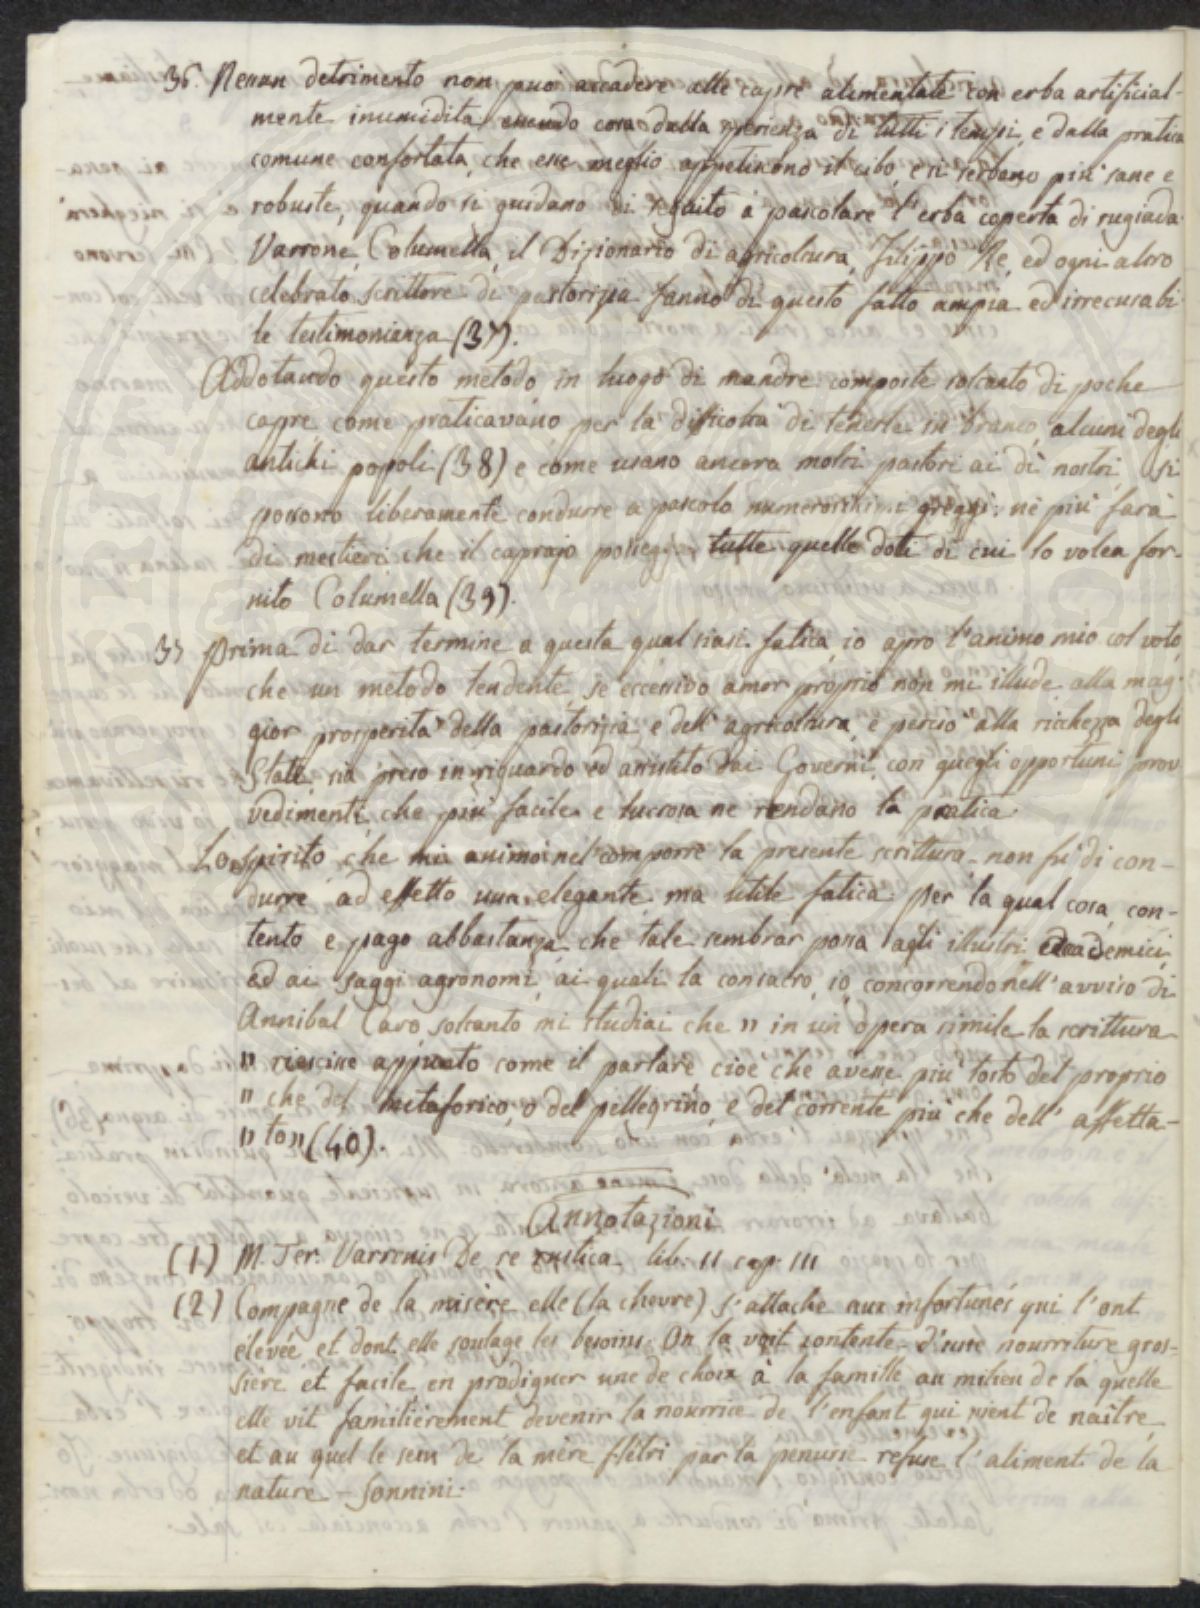 36. Nessun detrimento non puoi accadere alle capre alimentate con erba artificial-
mente inumidita, essendo cosa dalla sperienza di tutti i tempi, e dalla pratica
comune confortata, che esse meglio appetiscono il cibo, e si serbano più sane e
robuste, quando si guidano di repaito à pascolare l'erba coperta di rugiada.
Varrone, Columella, il Dizionario di agricoltura, Filippo Re, ed ogni altro
celebrato scrittore di pastorizia fanno di questo fatto ampia ed irrecusabi-
le testimonianza (37).
Addotando questo metodo in luogo di mandre composte soltanto di poche
capre come praticavano per la difficoltà di tenerle in branco, alcuni degli
antichi popoli (38) e come usano ancora molti pastori ai dì nostri, si
possono liberamente condurre a pascolo numerosissimi greggi: nè più farà
di mestieri che il caprajo possegga tutte quelle doti di cui lo volea for-
nito Columella (39).
37 Prima di dar termine a questa qual siasi fatica, io apro l'animo mio col voto,
che un metodo tendente, se eccessivo amor proprio non mi illude, alla mag-
gior prosperità della pastorizia e dell'agricoltura, e perciò alla ricchezza degli
Stati, sia preso in riguardo ed assistito dai Governi, con quegli opportuni prov-
vedimenti, che più facile e lucrosa ne rendano la pratica.
Lo spirito, che mi animò nel comporre la presente scrittura, non fu di con-
durre ad effetto una elegante, ma utile fatica: per la qual cosa, con-
tento e pago abbastanza, che tale sembrar possa agli illustri accademici,
ed ai saggi agronomi, ai quali la consacro, io, concorrendo nell'avviso di
Annibal Caro soltanto mi studiai che „ in un'opera simile la scrittura
„ riescisse appunto come il parlare cioè che avesse più tosto del proprio
„ che del metaforico, o del pellegrino, e del corrente più che dell'affetta-
„ to„ (40).
Annotazioni
(1) M. Ter. Varronis De re rustica lib: II cap: III
(2) Compagne de la misère elle (la chevre) s'attache aux infortunés qui l'ont
élévée et dont elle soulage les besoins. On la voit contente d'une nourriture gros-
sière et facile, en prodiguer une de choix à la famille au milieu de la quelle
elle vit familièrement devenir la nourrice de l'enfant qui vient de naitre,
et au quel le sein de la mère flétri par la penurie refuse l'aliment de la
nature – Sonnini.